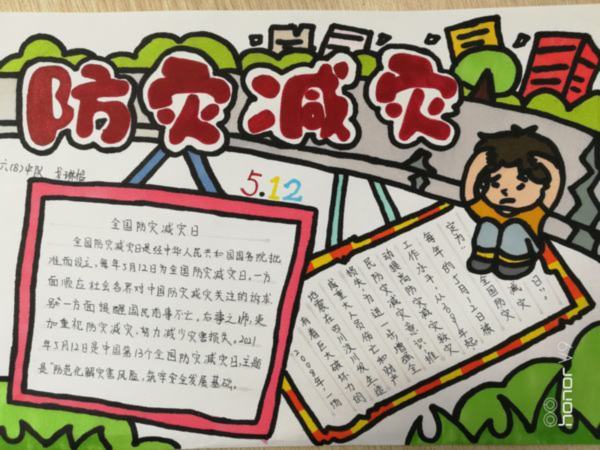 防灾减灾
六(8)中队
5.12
全国防灾减灾日
全国防灾减灾日是经中华人民共和国国务院批
准而设立,每年5月12日为全国防灾减灾日。一方
面顺应社会各界对中国防灾减灾关注的诉求
另一方面提醒国民 事不忘,后事之师,更
加重视防灾减灾,努力减少灾害损失。2021
年5月12日是中国第13个全国防灾减灾日,主题
是"防范化解灾害风险,筑牢安全发展基础。
2008年一场
有着巨大破坏力的
地震在四川汶川发生
重大人员伤亡和财产
损失为进一步增强全
民防灾减灾意识,
动提高防灾减灾救灾
工作水平,从2009年起
每年的5月12日被
定为"全国防灾减灾
日"
honor V9